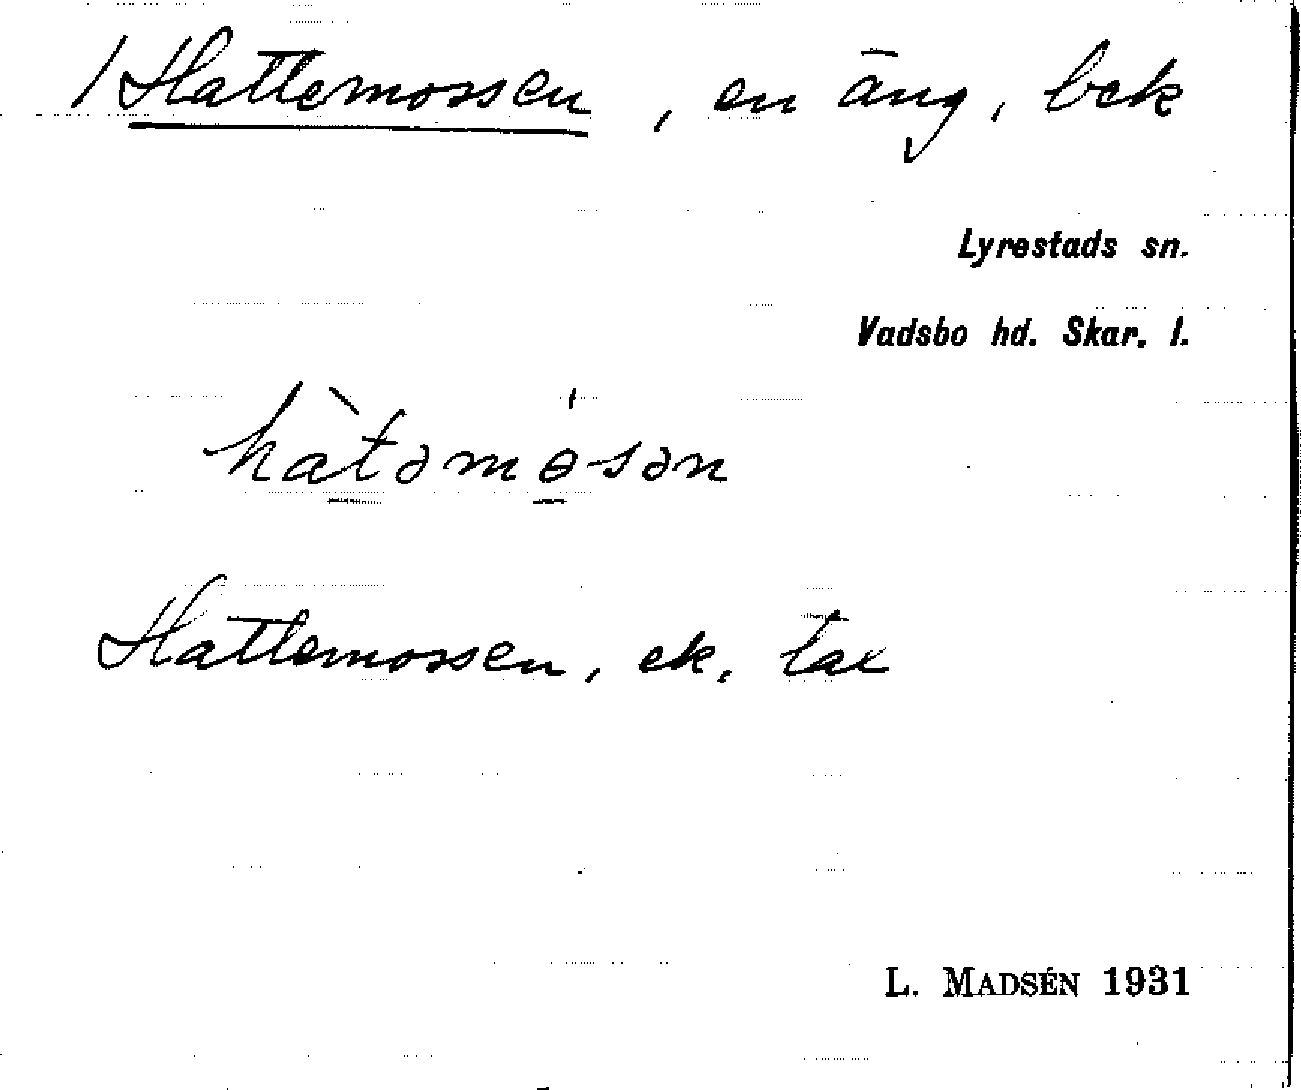 / Hattemossen, en äng, bek
Lyrestads sn.
Vadsbo hd. Skar. l.
hàtəmɵ́sən
Hattemossen, ek. tax
L. MADSÉN 1931